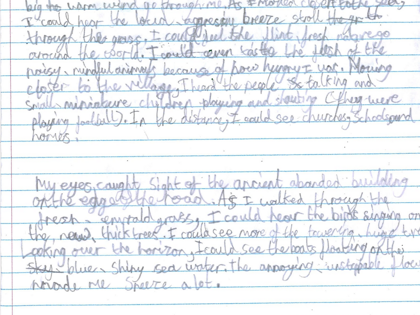 big warm wind go through me. As I
I could hear the loud, aggressive breeze stroll the
through the grass. I could feel the flint, fresh
around the world. I could even taste the flesh of the
noisy, mindful animals because of how hungry I was. Moving
closer to the village, I heard the people talking and
small miniature children playing and shouting (they were
playing football). In the distance, I could see churches, schools and
homes.
My eyes caught sight of the ancient abanded building
on the egge of the road. As I walked through the
fresh, emrald grass, I could hear the birds singing on
the, thick trees. I could see more of the towering, huge
Looking over the horizon, I could see the boats floating on the
blue, shiny sea water. The annoying, unstopable
made me sneeze a lot.